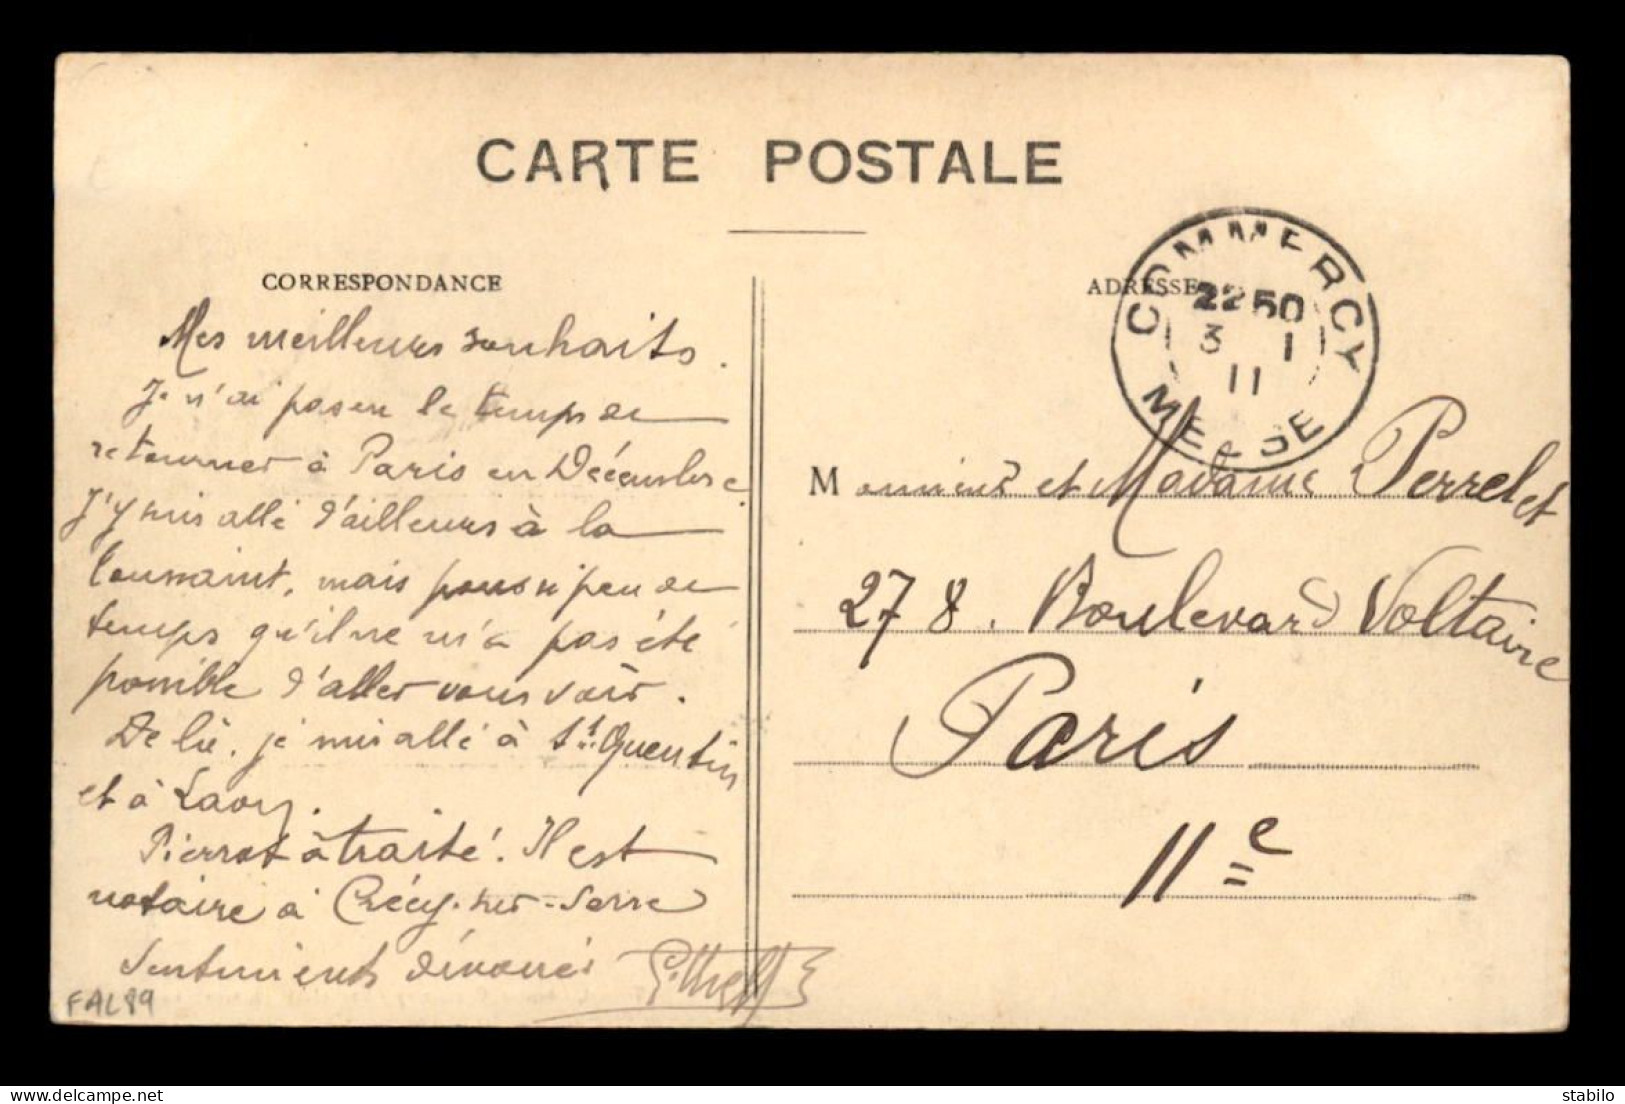 CARTE POSTALE
CORRESPONDANCE
Mes meilleurs souhaits.
Je n'ai pas eu le temps de
retourner à Paris en Décembre.
J'y suis allé d'ailleurs à la
Toussaint, mais pour si peu de
temps qu'il ne m'a pas été
possible d'aller vous voir.
De là, je suis allé à St. Quentin
et à Laon.
Pierrot a traité. Il est
notaire à Crécy-sur-Serre
Sentiments dévoués
FAL89
ADRESSE
COMMERCY
2250
3 1
11
MEUSE
Monsieur et Madame Perrelet
278. Boulevard Voltaire
Paris
11e
delcampe.net
stabilo